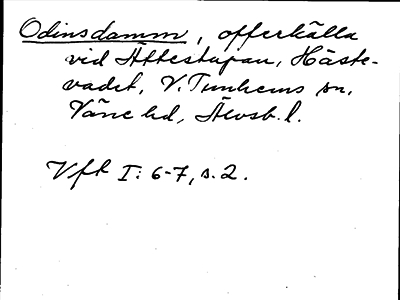 Odinsdamm, offerkälla
vid Ättestupan, Häste-
vadet, V. Tunhems sn,
Väne hd, Älvsb. l.
Vft I: 6-7, s. 2.